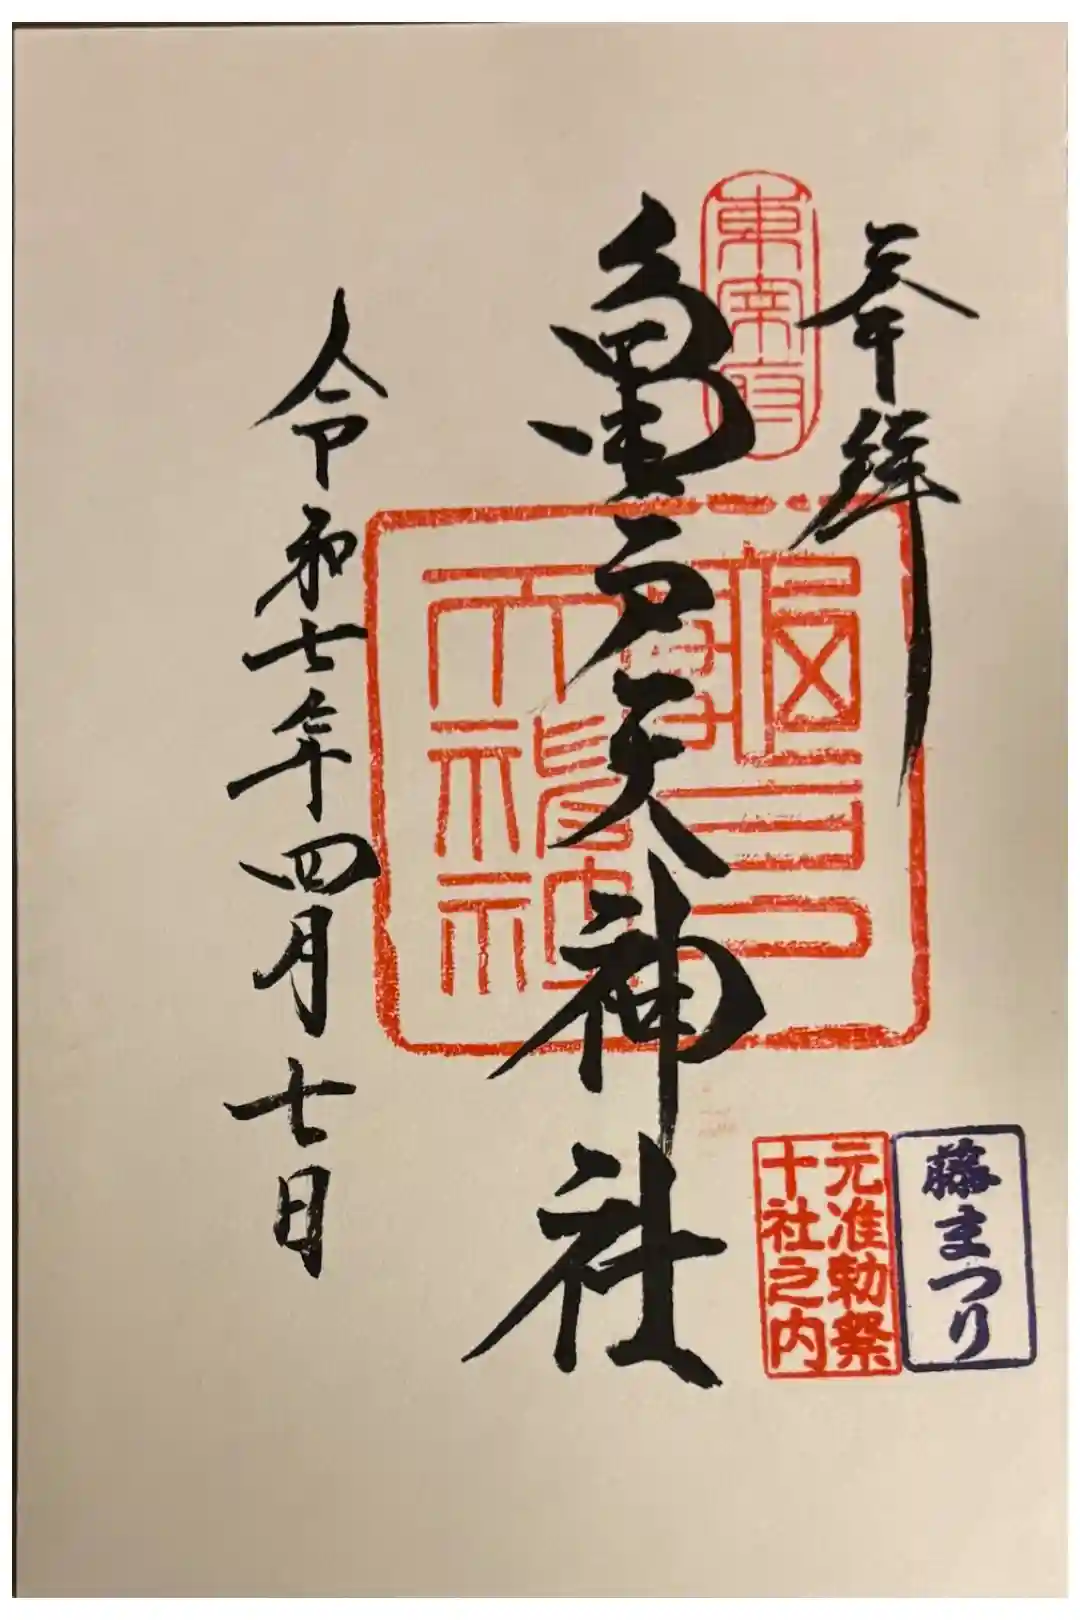 奉拝
東宰府
亀戸天神社
令和七年四月七日
藤まつり
元准勅祭
十社之内